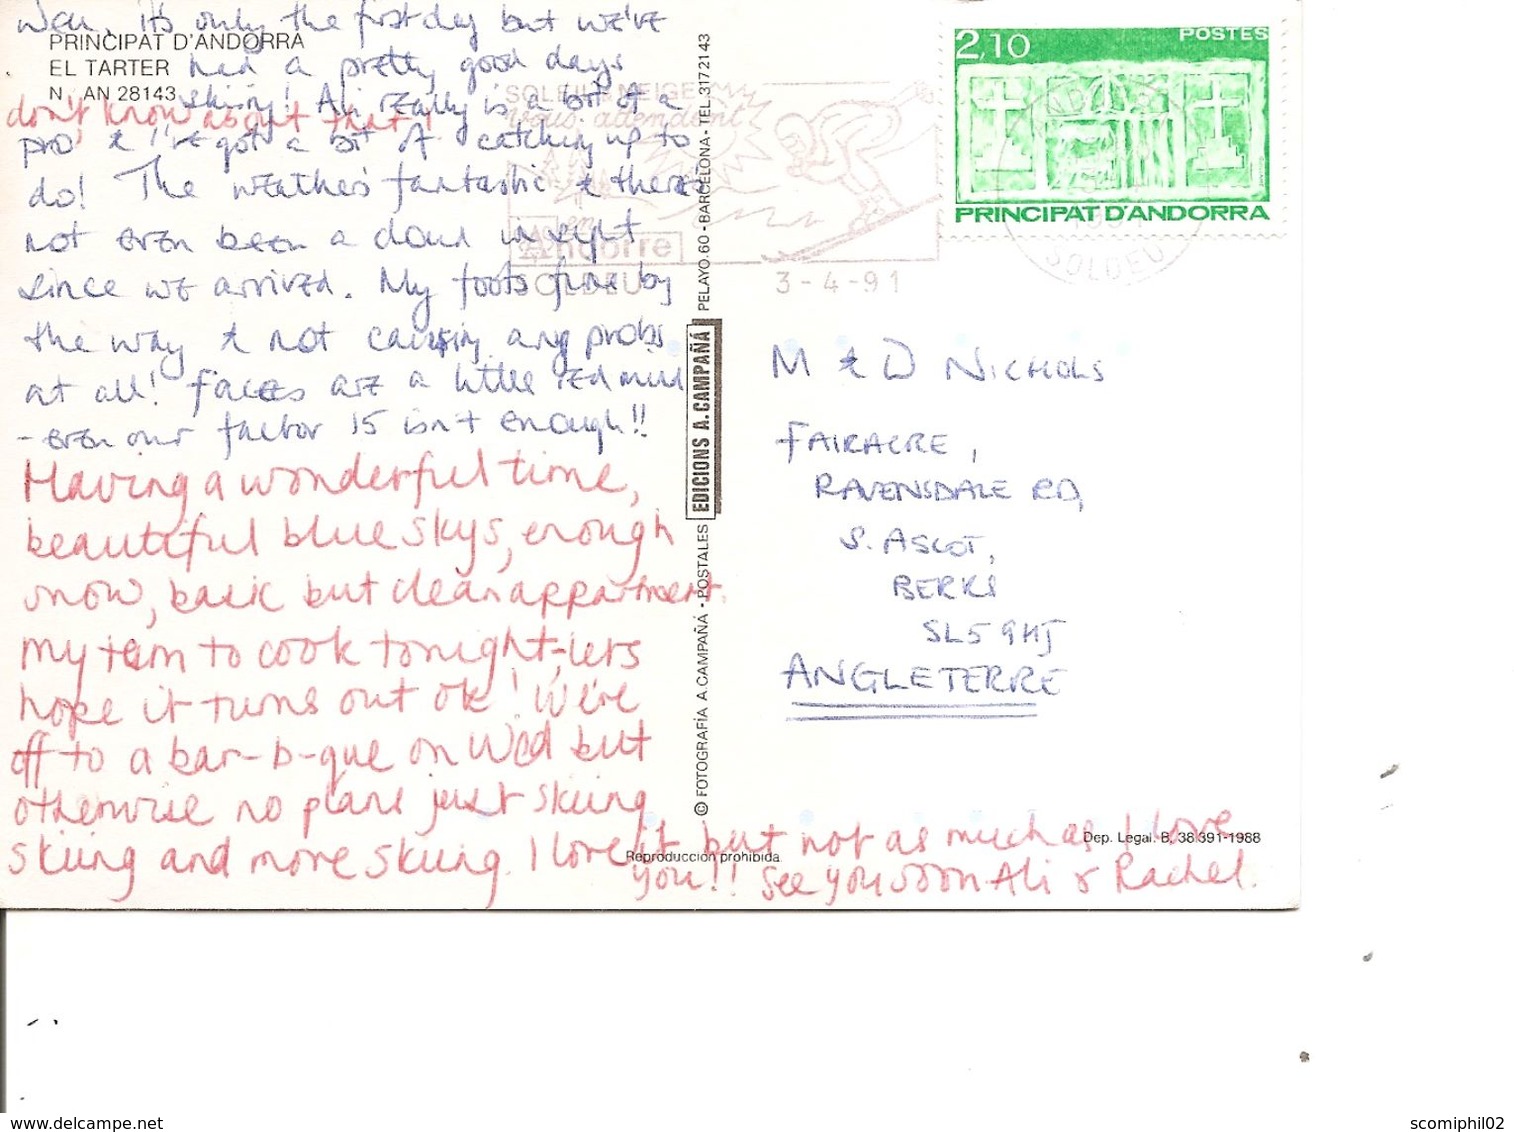 Well, it's only the first day but we've
PRINCIPAT D'ANDORRA
EL TARTER
N. AN 28143
had a pretty good days
skiing! Ali really is a bit of a
don't know about that!
pro & I've got a bit of catching up to
do! The weather's fantastic & there's
not even been a cloud in sight
since we arrived. My foots fine by
the way & not causing any probs
at all! Faces are a little red mind
- even our factor 15 isn't enough!!
Having a wonderful time,
beautiful blue skys, enough
snow, basic but clean appartment.
My turn to cook tonight, lets
hope it turns out ok! We're
off to a bar-b-que on Wed but
otherwise no plans just skiing
skiing and more skiing. I love it but not as much as I love
you!! See you soon Ali & Rachel.
SOLEIL NEIGE
vous attendent
en
Andorre
SOLDEU
3-4-91
2,10
POSTES
PRINCIPAT D'ANDORRA
SOLDEU
© FOTOGRAFÍA A. CAMPAÑÁ - POSTALES EDICIONS A. CAMPAÑÁ PELAYO, 60 - BARCELONA - TEL. 317 21 43
M & D NICHOLS
FAIRACRE,
RAVENSDALE RD,
S. ASCOT,
BERKS
SL5 9HJ
ANGLETERRE
Reproducción prohibida.
Dep. Legal. B. 38391-1988
www.delcampe.net
scomiphil02